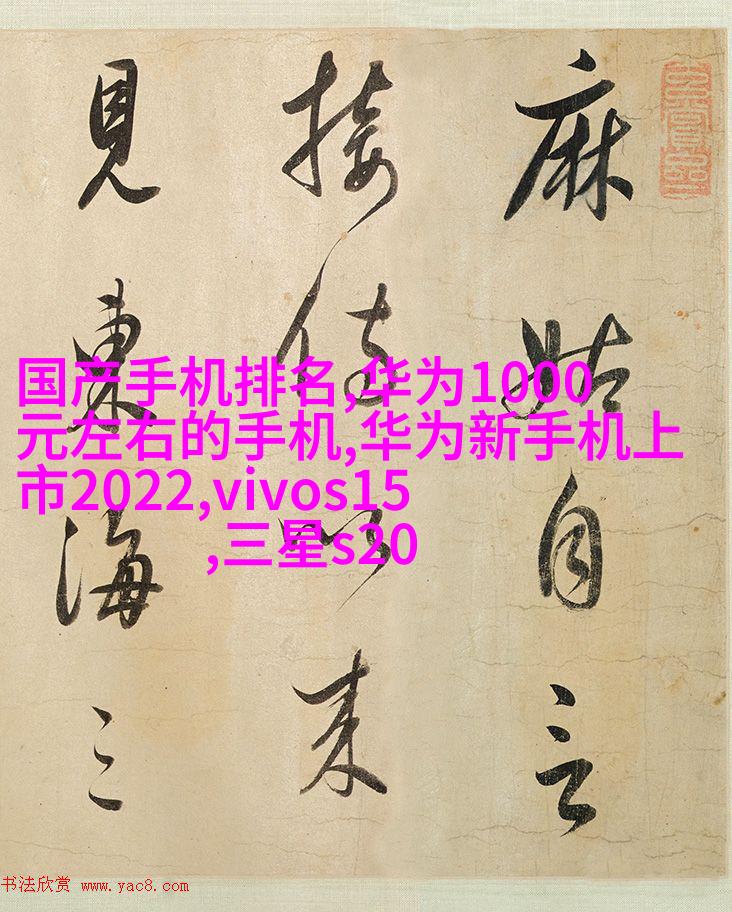 麻姑自言
接侍以来
見東海三
国产手机排名,华为1000
元左右的手机,华为新手机上
市2022,vivos15
,三星s20
书法欣赏 www.yac8.com